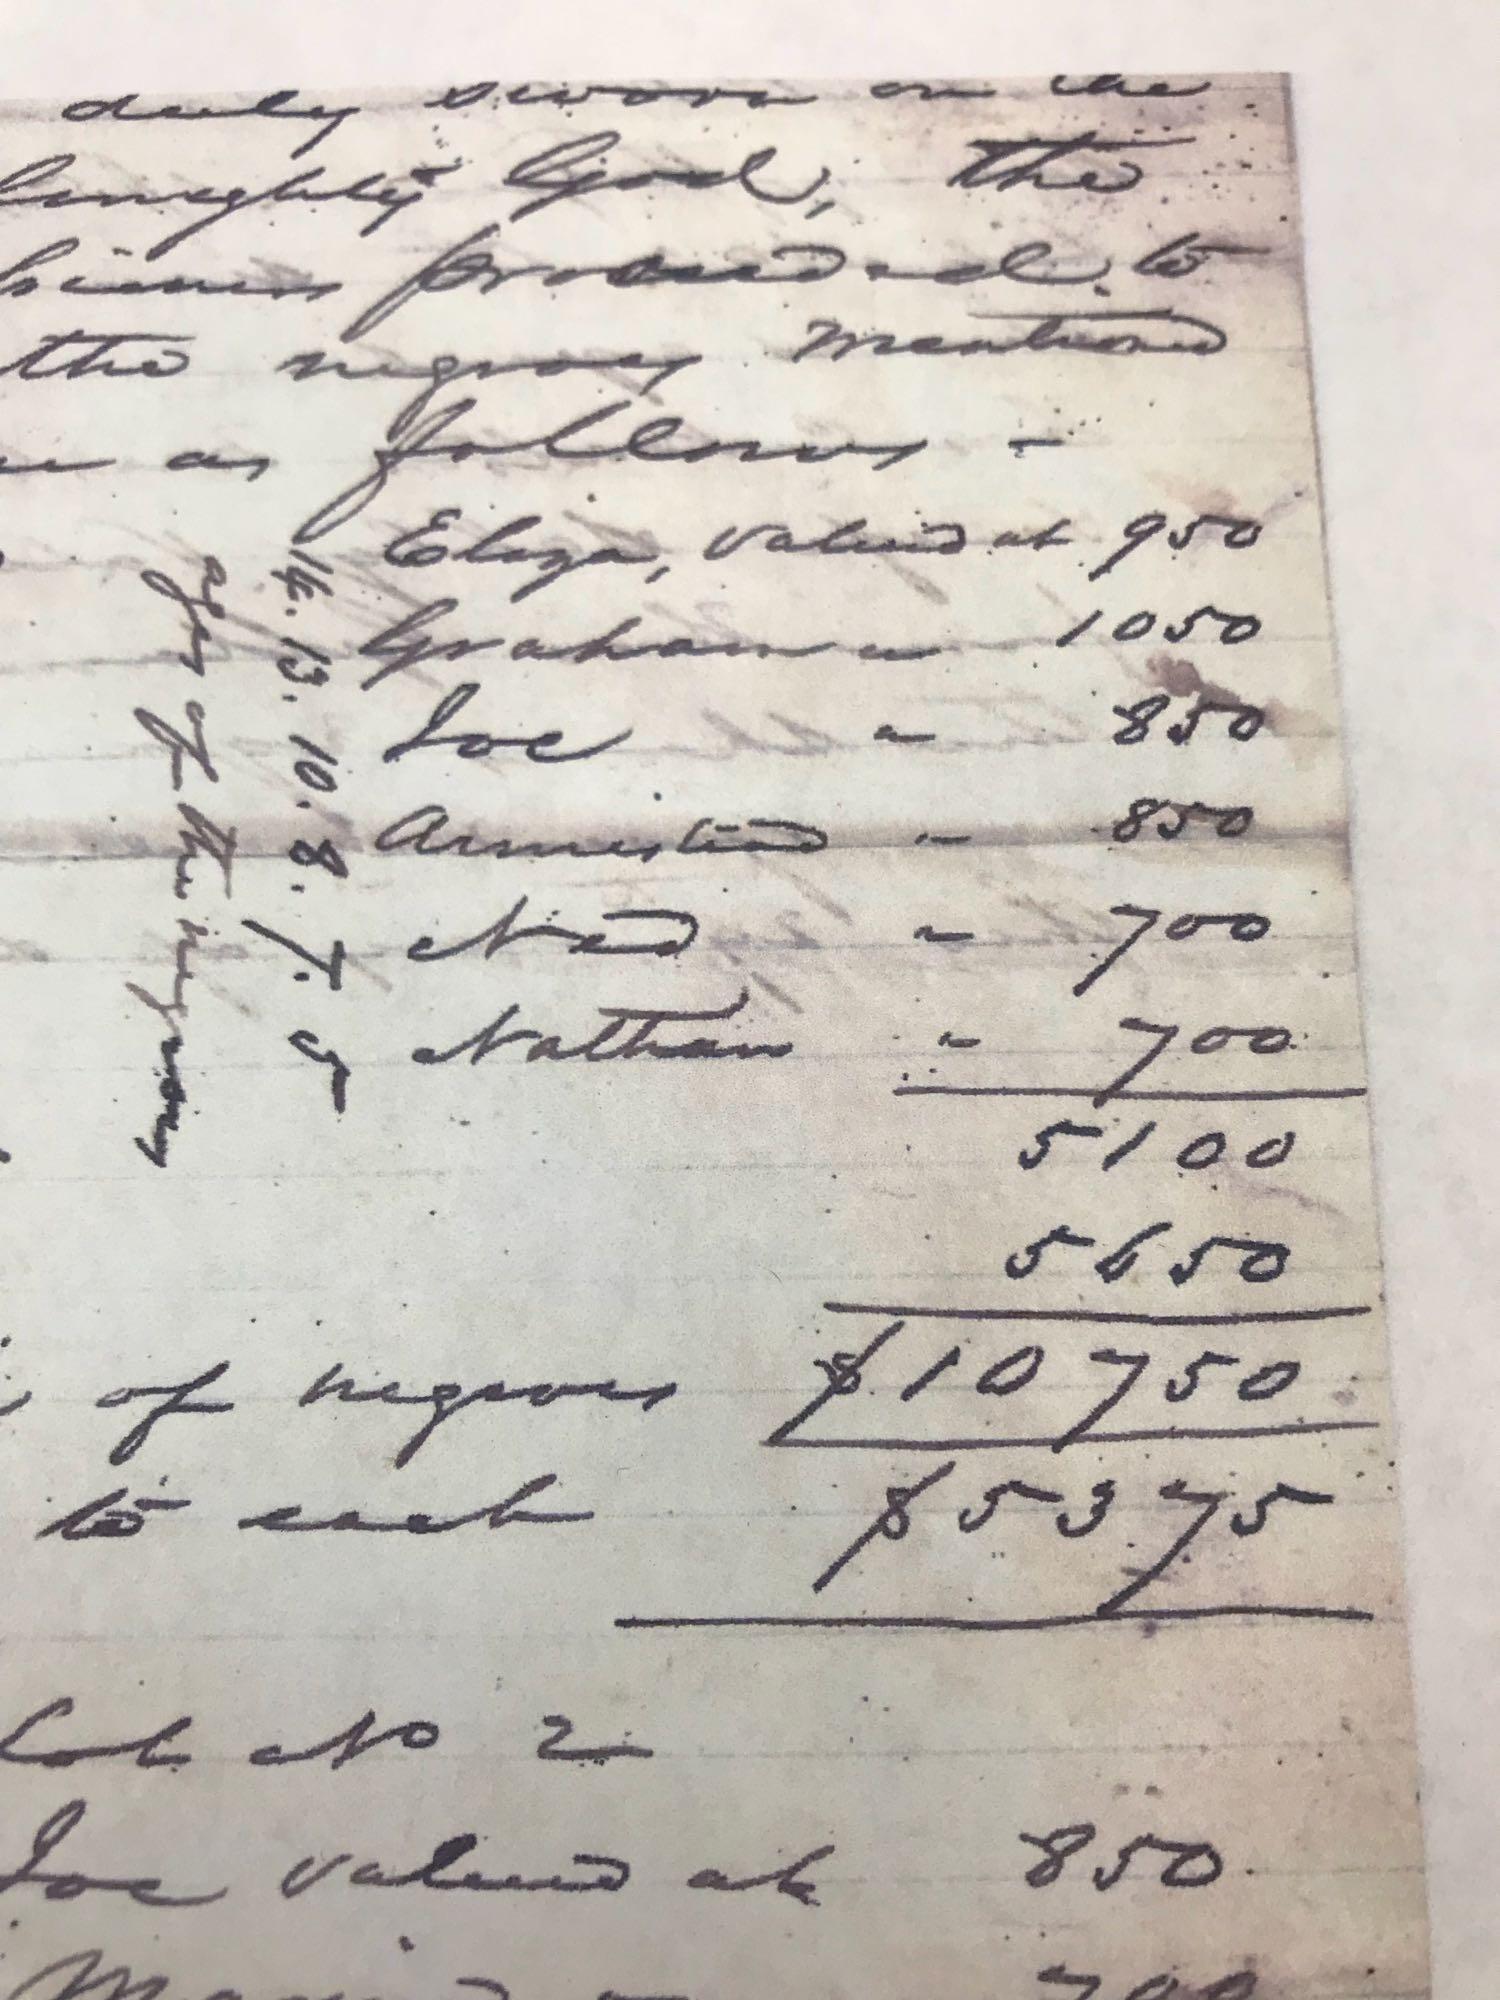 duly sworn on the
Almighty God, the
proceeded to
the negroes mentioned
as follows -
Eliza, valued at 950
Graham " 1050
Joe " 850
Armestead " 850
Ned " 700
Nathan " 700
14. 13. 10. 8. 7. 5
ages of the negroes
5100
5650
of negroes $10750
to each $5375
Lot No 2
Joe valued at 850
700